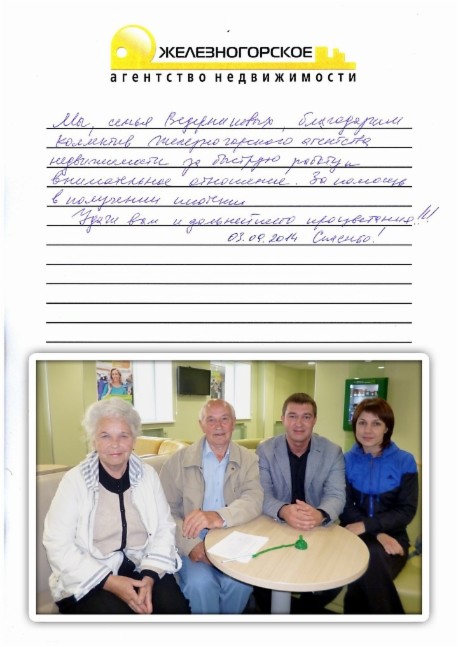 ЖЕЛЕЗНОГОРСКОЕ
агентство недвижимости
Мы, семья Ведерниковых, благодарим
коллектив Железногорского агентства
недвижимости за быструю работу и
внимательное отношение. За помощь
в получении ипотеки
Удачи вам и дальнейшего процветания!!!
03.09.2014 Спасибо!